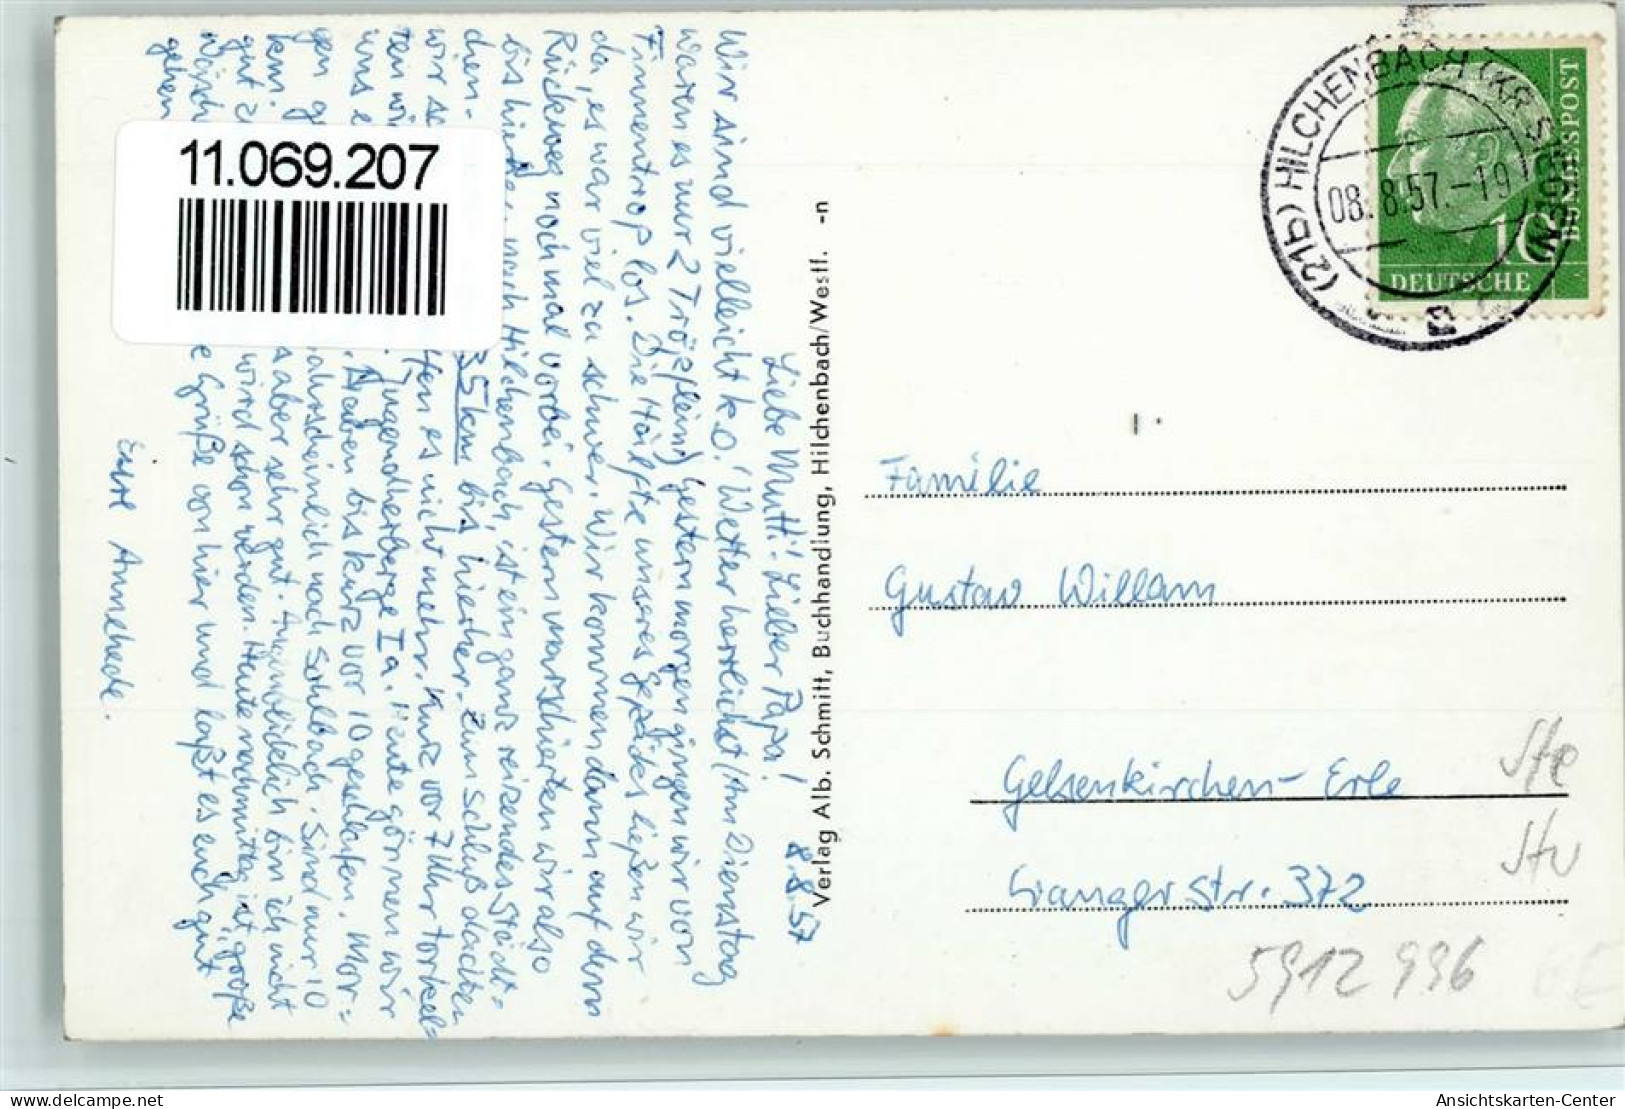 8.8.57
Liebe Mutti! Lieber Papa!
Wir sind vielleicht k.o.! Wetter herrlichst (Am Dienstag
waren es nur 2 Tröpflein) Gestern morgen gingen wir von
Finnentrop los. Die Hälfte unseres Gepäcks ließen wir
da, es war viel zu schwer. Wir kommen dann auf dem
Rückweg noch mal vorbei. Gestern marschierten wir also
bis hierher nach Hilchenbach, ist ein ganz reizendes Städt=
chen. 35 km bis hierher. Zum Schluß dachten
wir es nicht mehr. Kurz vor 7 Uhr torkel=
ten wi Jugendherberge Ia. Heute gönnen wir
uns e Haben bis kurz vor 10 geschlafen. Mor=
gen g ahrscheinlich nach Sohlbach. Sind nur 10
km. aber sehr gut. Augenblicklich bin ich nicht
gut z wird schon werden. Heute nachmittag ist „große
Wäsch e Grüße von hier und laßt es euch gut
gehen
Eure Annehede.
Verlag Alb. Schmitt, Buchhandlung, Hilchenbach/Westf. -n
11.069.207
(21b) HILCHENBACH (KR SIEGEN)
08.8.57.-19
10
DEUTSCHE
BUNDESPOST
Familie
Gustav Willam
Gelsenkirchen-Erle
Cranger Str. 372
5912996
delcampe.net
oldthing
Ansichtskarten-Center